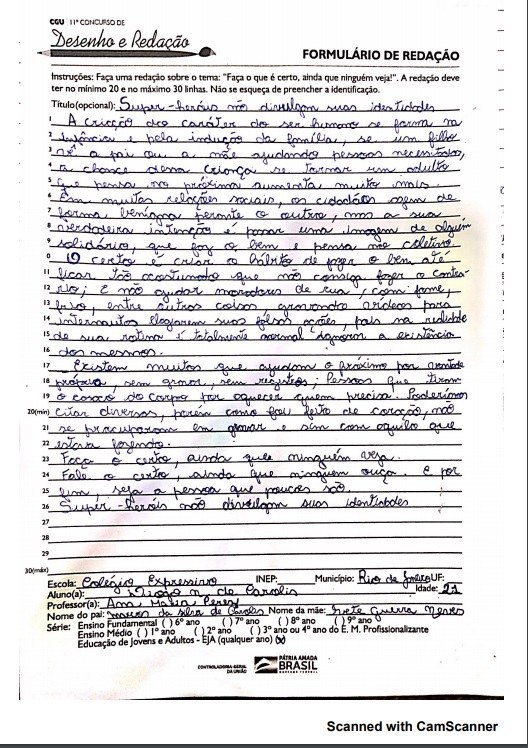 CGU 11º CONCURSO DE
Desenho e Redação
FORMULÁRIO DE REDAÇÃO
Instruções: Faça uma redação sobre o tema: "Faça o que é certo, ainda que ninguém veja!". A redação deve
ter no mínimo 20 e no máximo 30 linhas. Não se esqueça de preencher a identificação.
Título(opcional): Super-heróis não divulgam suas identidades
1 A criação do caráter do ser humano se forma na
2 infância e pela indução da família, se um filho
3 vê o pai ou a mãe ajudando pessoas necessitadas,
4 a chance dessa criança se tornar um adulto
5 que pensa no próximo aumenta muito mais.
6 Em muitas relações sociais, os cidadãos agem de
7 forma benigna perante o outro, mas a sua
8 verdadeira intenção é passar uma imagem de alguém
9 solidário, que faz o bem e pensa no coletivo.
10 O certo é criar o hábito de fazer o bem até
11 ficar tão acostumado que não consiga fazer o contrá-
12 rio; E não ajudar moradores de rua, com fome,
13 frio, entre outras coisas gravando vídeos para
14 internautas elogiarem suas falsas ações, pois na realidade
15 de sua rotina é totalmente normal ignorar a existência
16 dos mesmos.
17 Existem muitos que ajudam o próximo por vontade
18 própria, sem gravar, sem registros; Pessoas que tiram
19 o casaco do corpo por aquecer quem precisa. Poderíamos
20(min) citar diversas, porém como foi feito de coração, não
21 se preocuparam em gravar e sim com aquilo que
22 estava fazendo.
23 Faça o certo, ainda que ninguém veja.
24 Fale o certo, ainda que ninguém ouça. E por
25 fim, seja a pessoa que poucos são.
26 Super-heróis não divulgam suas identidades
27
28
29
30(máx)
Escola: Colégio Expressivo INEP: Município: Rio de Janeiro UF:
Aluno(a): Diogo n. de Carolis Idade: 21
Professor(a): Ana Maria Peres
Nome do pai: da silva de Carolis Nome da mãe: Ivete Guerra Neves
Série: Ensino Fundamental ( ) 6º ano ( ) 7º ano ( ) 8º ano ( ) 9º ano
Ensino Médio ( ) 1º ano ( ) 2º ano ( ) 3º ano ou 4º ano do E. M. Profissionalizante
Educação de Jovens e Adultos - EJA (qualquer ano) (x)
CONTROLADORIA-GERAL
DA UNIÃO
PÁTRIA AMADA
BRASIL
Scanned with CamScanner